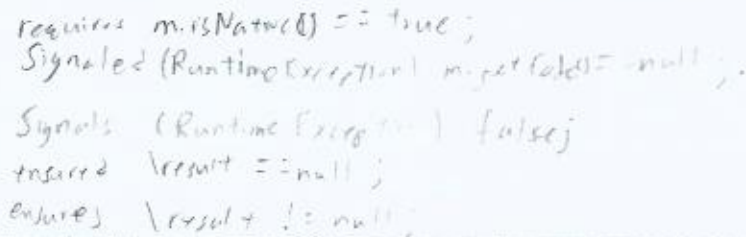 requires m.isNative() == true;
Signaled (RuntimeException) m.get(old) = null;.
Signals (Runtime Exception) false;
ensured \result == null;
ensures \result != null;